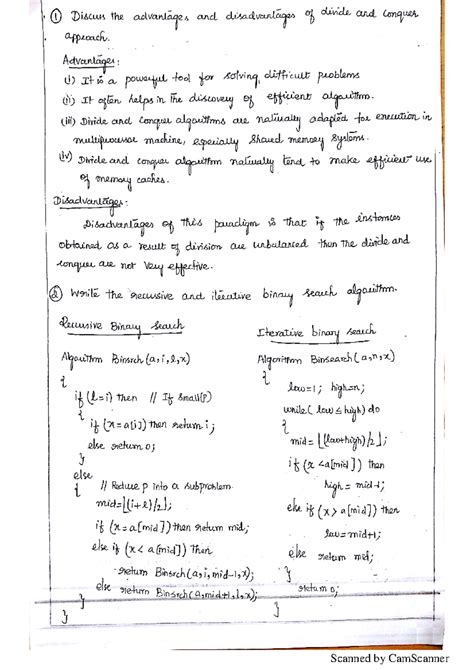 ① Discuss the advantages and disadvantages of divide and conquer
approach.
Advantages:
(i) It is a powerful tool for solving difficult problems
(ii) It often helps in the discovery of efficient algorithm.
(iii) Divide and Conquer algorithms are naturally adapted for execution in
multiprocessor machine, especially shared memory systems.
(iv) Divide and conquer algorithm naturally tend to make efficient use
of memory caches.
Disadvantages:
Disadvantages of this paradigm is that if the instances
obtained as a result of division are unbalanced then the divide and
conquer are not very effective.
② Write the recursive and iterative binary search algorithm.
Recursive Binary Search
Algorithm Binsrch(a,i,l,x)
{
if (l=i) then // If Small(P)
{
if (x=a[i]) then return i;
else return 0;
}
else
{ // Reduce p into a subproblem.
mid=⌊(i+l)/2⌋;
if (x=a[mid]) then return mid;
else if (x<a[mid]) then
return Binsrch(a,i,mid-1,x);
else return Binsrch(a,mid+1,l,x);
}
}
Iterative binary search
Algorithm Binsearch(a,n,x)
{
low=1; high=n;
while (low ≤ high) do
{
mid = ⌊(low+high)/2⌋;
if (x <a[mid]) then
high = mid-1;
else if (x > a[mid]) then
low=mid+1;
else return mid;
}
return 0;
}
Scanned by CamScanner